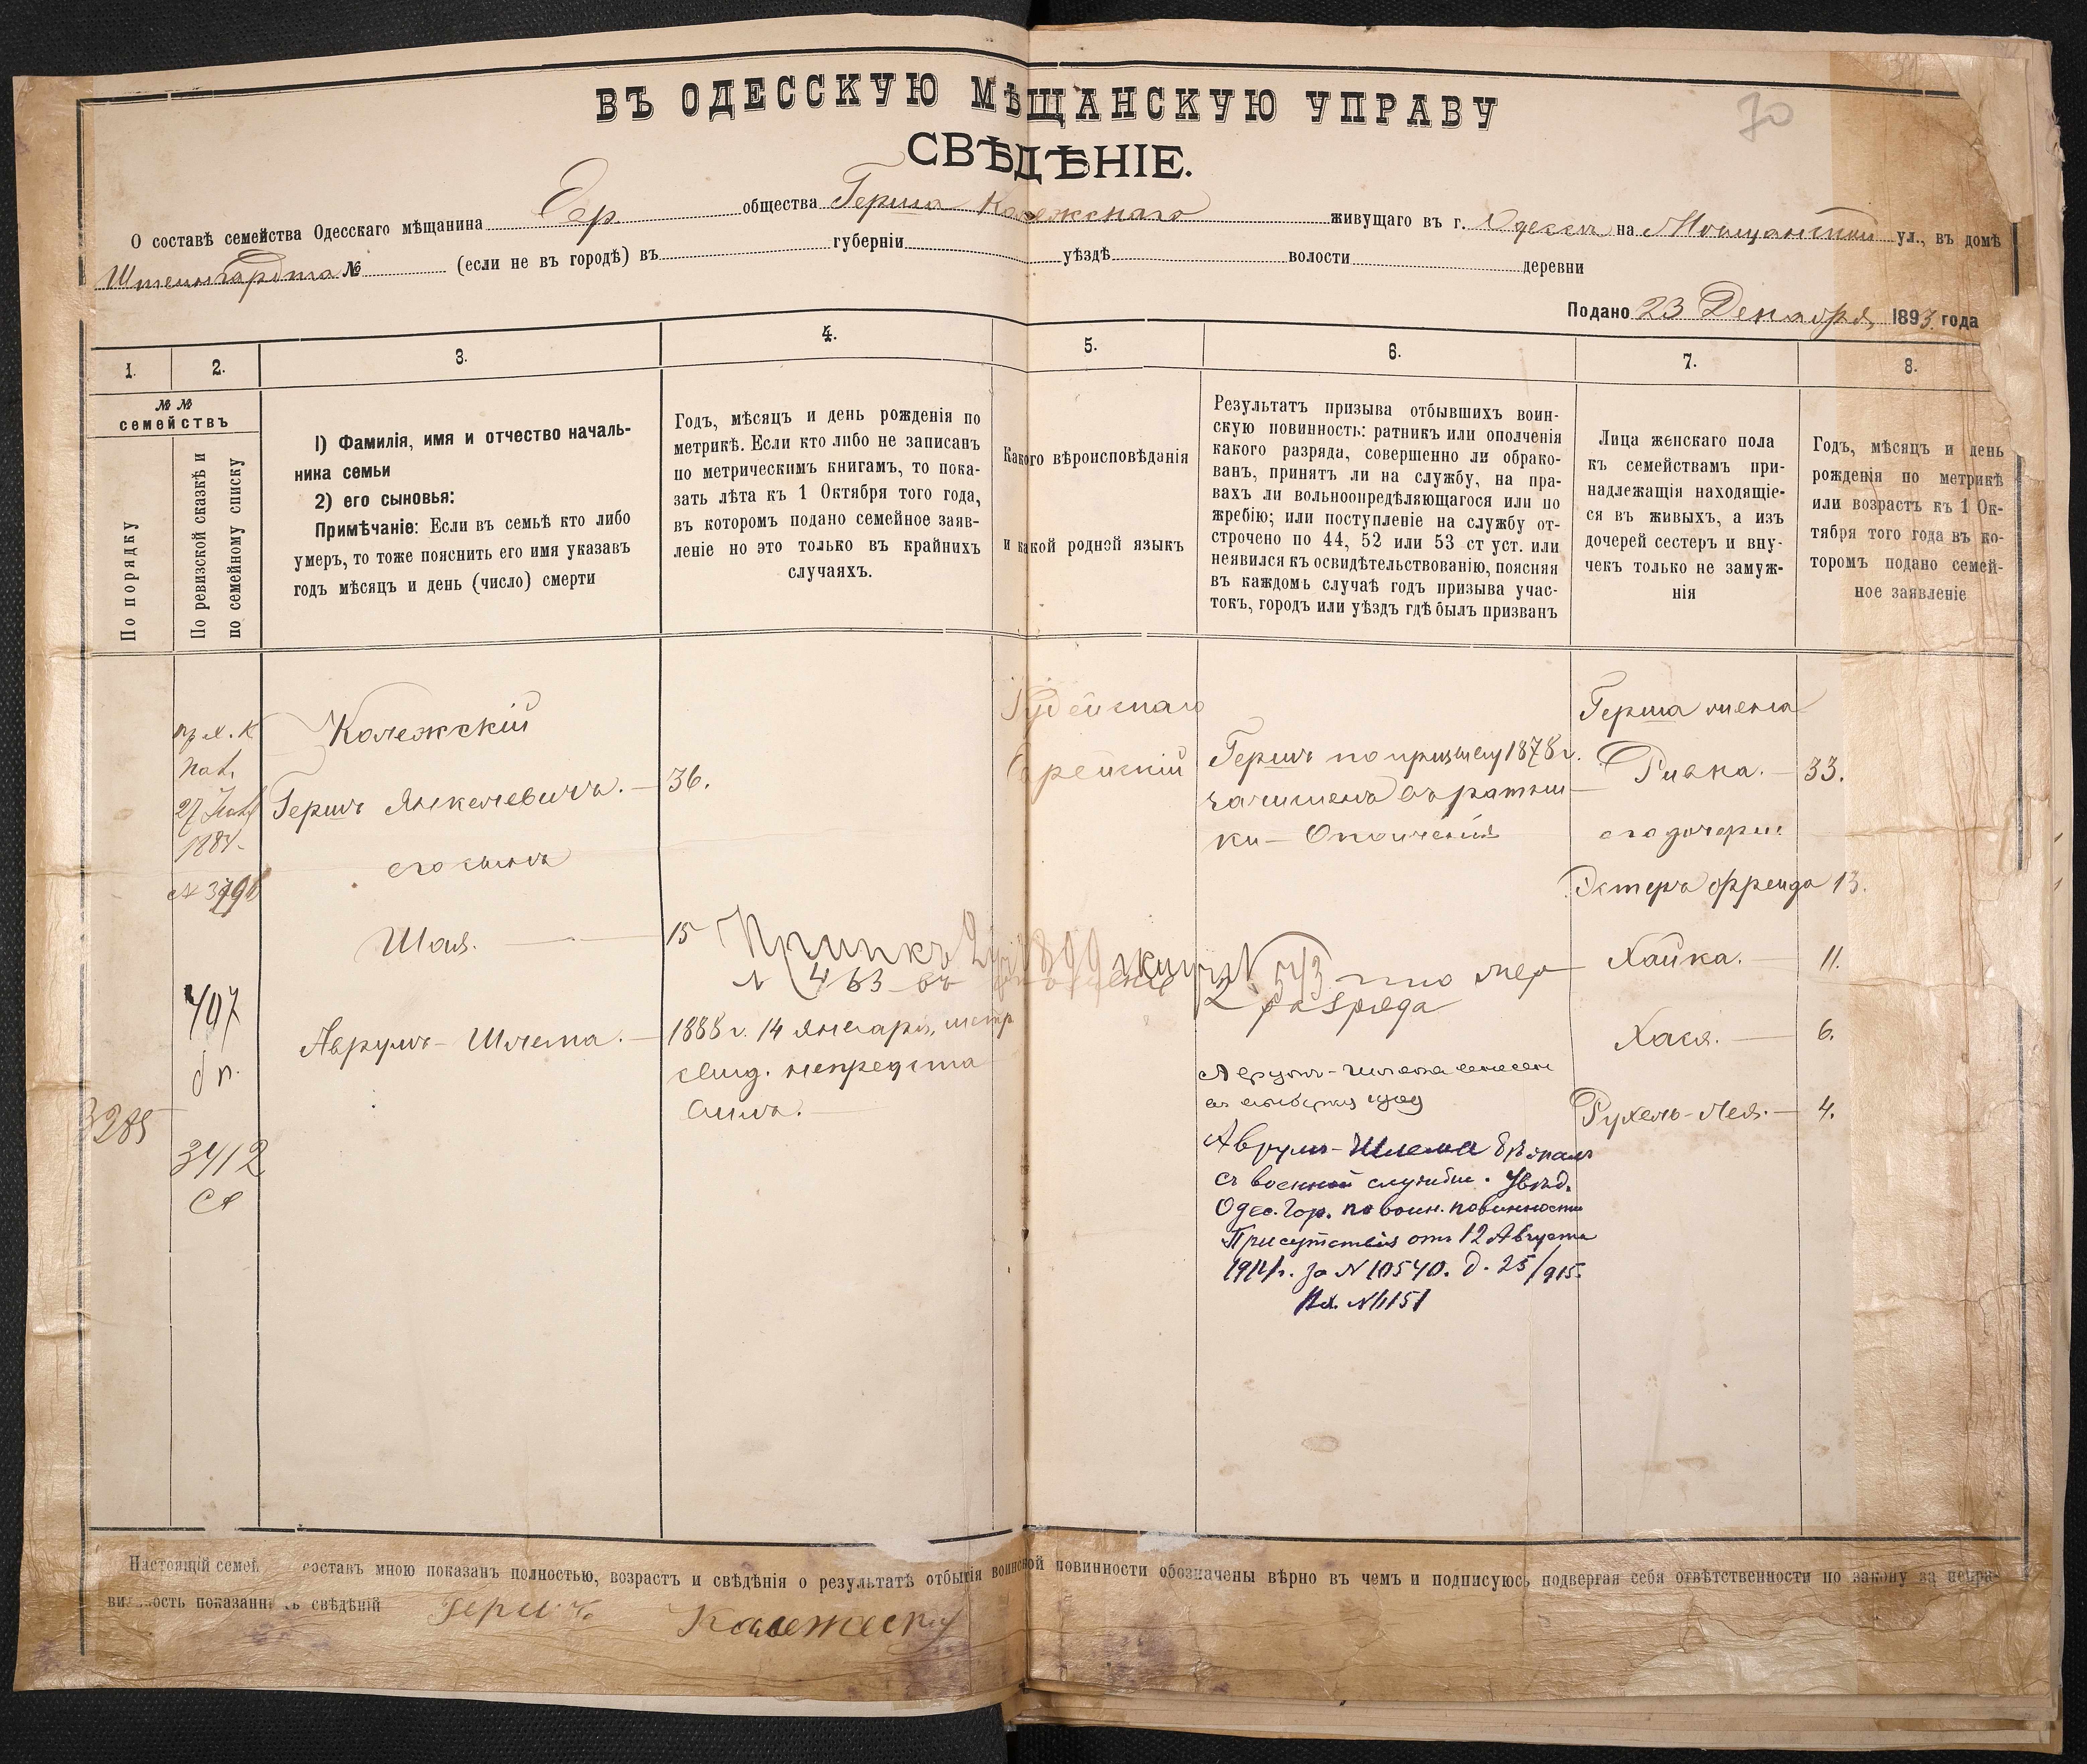 70
ВЪ ОДЕССКУЮ МѢЩАНСКУЮ УПРАВУ
СВѢДѢНІЕ.
О составѣ семейства Одесскаго мѣщанина Евр общества Герша Колежскаго живущаго въ г. Одессѣ на Мѣщанской ул., въ домѣ
Штейнгардта № (если не въ городѣ) въ губерніи уѣздѣ волости деревни
Подано 23 Декабря 1893 года
1. 2. 3. 4. 5. 6. 7. 8.
№ № семействъ
По порядку
По ревизской сказкѣ и
по семейному списку
1) Фамилія, имя и отчество началь-
ника семьи
2) его сыновья:
Примѣчаніе: Если въ семьѣ кто либо
умеръ, то тоже пояснить его имя указавъ
годъ мѣсяцъ и день (число) смерти
Годъ, мѣсяцъ и день рожденія по
метрикѣ. Если кто либо не записанъ
по метрическимъ книгамъ, то пока-
зать лѣта къ 1 Октября того года,
въ которомъ подано семейное заяв-
леніе но это только въ крайнихъ
случаяхъ.
Какого вѣроисповѣданія
и какой родной языкъ
Результатъ призыва отбывшихъ воин-
скую повинность: ратникъ или ополченія
какого разряда, совершенно ли обрако-
ванъ, принятъ ли на службу, на пра-
вахъ ли вольноопредѣляющагося или по
жребію; или поступленіе на службу от-
строчено по 44, 52 или 53 ст уст. или
неявился къ освидѣтельствованію, поясняя
въ каждомъ случаѣ годъ призыва учас-
токъ, городъ или уѣздъ гдѣ былъ призванъ
Лица женскаго пола
къ семействамъ при-
надлежащія находящіе-
ся въ живыхъ, а изъ
дочерей сестеръ и вну-
чекъ только не замуж-
нія
Годъ, мѣсяцъ и день
рожденія по метрикѣ
или возрастъ къ 1 Ок-
тября того года въ ко-
торомъ подано семей-
ное заявленіе
1884
407
3285
3412
Колежскій
Гершъ Янкелевичъ. — 36.
его сынъ
Шая. — 15
Аврумъ-Шлема. — 1888 г. 14 января, метр
свид. непредста
вилъ.
№ 463
Іудейскаго
Еврейскій
Гершъ по призыву 1878 г.
зачисленъ въ ратни
ки — Ополченія
2 разряда
Аврумъ-Шлема внесен
Аврумъ-Шлема бѣжалъ
съ военной службы. Увѣд.
Одес. Гор. по воин. повинности
Присутствія отъ 12 Августа
1914 г. за N 10540. д. 25/915.
Вх. N 4151
Герша жена
Ривка. — 33.
его дочери:
Эстеръ Фрейда 13.
Хайка. — 11.
Хася. — 6.
Рухель-Лея. — 4.
Настоящій семей составъ мною показанъ полностью, возрастъ и свѣдѣнія о результатѣ отбытія воинской повинности обозначены вѣрно въ чемъ и подписуюсь подвергая себя отвѣтственности по закону за непра-
вильность показанныхъ свѣдѣній Гершъ Колежски